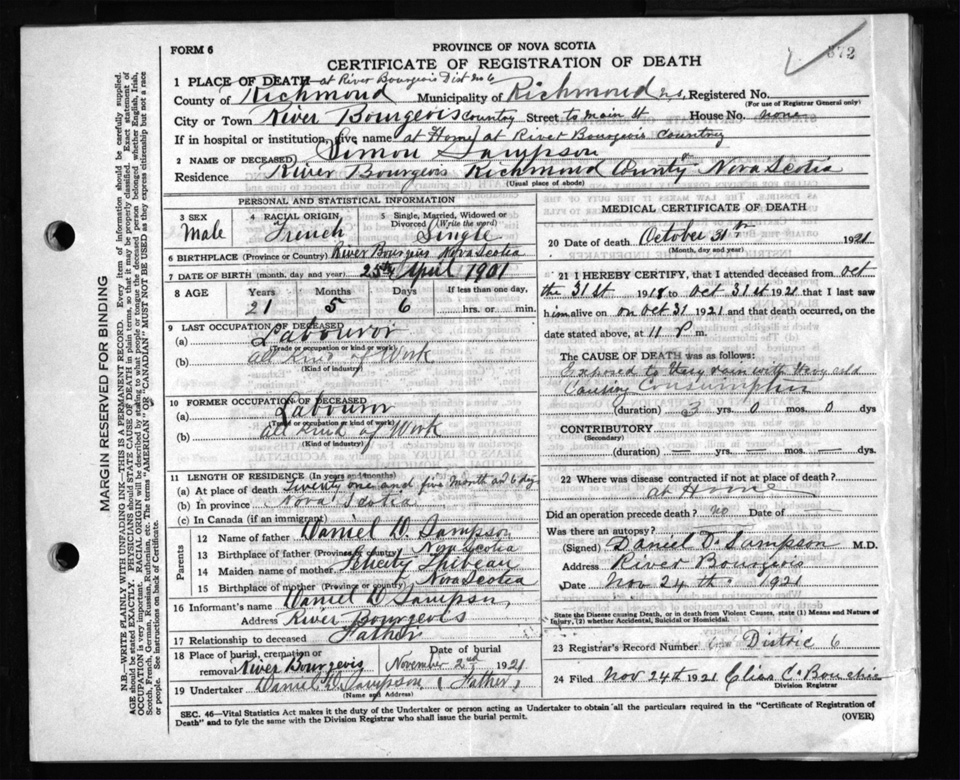 FORM 6
PROVINCE OF NOVA SCOTIA
CERTIFICATE OF REGISTRATION OF DEATH
372
1 PLACE OF DEATH— at River Bourgeois Dist No 6
County of Richmond Municipality of Richmond N.S. Registered No.
(For use of Registrar General only)
City or Town River Bourgeois Country Street to main St. House No. None
If in hospital or institution, give name at Home at River Bourgeois Country
2 NAME OF DECEASED Simon Sampson
Residence River Bourgeois Richmond County Nova Scotia
(Usual place of abode)
PERSONAL AND STATISTICAL INFORMATION
3 SEX Male
4 RACIAL ORIGIN French
5 Single, Married, Widowed or Divorced (Write the word) Single
6 BIRTHPLACE (Province or Country) River Bourgeois Nova Scotia
7 DATE OF BIRTH (month, day and year) 25th April 1901
8 AGE Years Months Days If less than one day,
21 5 6 hrs. or min.
9 LAST OCCUPATION OF DECEASED
(a) Labouror
(Trade or occupation or kind of work)
(b) all Kind of Work
(Kind of industry)
10 FORMER OCCUPATION OF DECEASED
(a) Labouror
(Trade or occupation or kind of work)
(b) all Kind of Work
(Kind of industry)
11 LENGTH OF RESIDENCE (In years and months)
(a) At place of death Twenty one and five Month and 6 days
(b) In province Nova Scotia
(c) In Canada (if an immigrant)
Parents
12 Name of father Daniel D. Sampson
13 Birthplace of father (Province or country) Nova Scotia
14 Maiden name of mother Felicity
15 Birthplace of mother (Province or country) Nova Scotia
16 Informant's name Daniel D Sampson,
Address River Bourgeois
17 Relationship to deceased Father
18 Place of burial, cremation or removal River Bourgeois
Date of burial November 2nd 1921
19 Undertaker Daniel D Sampson (Father)
(Name and Address)
MEDICAL CERTIFICATE OF DEATH
20 Date of death October 31th 1921
(Month, day and year)
21 I HEREBY CERTIFY, that I attended deceased from Oct
the 31st 1918 to Oct 31st 1921 that I last saw
him alive on on Oct 31 1921 and that death occurred, on the
date stated above, at 11 P. m.
The CAUSE OF DEATH was as follows:
Exposed to rain with cold
Causing Consumption
(duration) 3 yrs. 0 mos. 0 dys
CONTRIBUTORY
(Secondary)
(duration) — yrs. — mos. — dys
22 Where was disease contracted if not at place of death?
at Home
Did an operation precede death? No Date of —
Was there an autopsy?
(Signed) Daniel D. Sampson M.D.
Address River Bourgeois
Date Nov 24th 1921
State the Disease causing Death, or in death from Violent Causes, state (1) Means and Nature of
Injury, (2) whether Accidental, Suicidal or Homicidal.
23 Registrar's Record Number 6 Distric 6
24 Filed Nov 24th 1921
Division Registrar
SEC. 46—Vital Statistics Act makes it the duty of the Undertaker or person acting as Undertaker to obtain all the particulars required in the "Certificate of Registration of
Death" and to fyle the same with the Division Registrar who shall issue the burial permit.
(OVER)
MARGIN RESERVED FOR BINDING
N.B.—WRITE PLAINLY WITH UNFADING INK—THIS IS A PERMANENT RECORD. Every item of information should be carefully supplied.
AGE should be stated EXACTLY. PHYSICIANS should STATE CAUSE OF DEATH in plain terms, so that it may be properly classified. Exact statement of
OCCUPATION is very important. RACIAL ORIGIN will be described by stating to what people or tongue the deceased person belonged whether English, Irish,
Scotch, French, German, Russian, Ruthenian, etc. The terms "AMERICAN" OR "CANADIAN" MUST NOT BE USED as they express citizenship but not a race
or people. See instructions on back of Certificate.